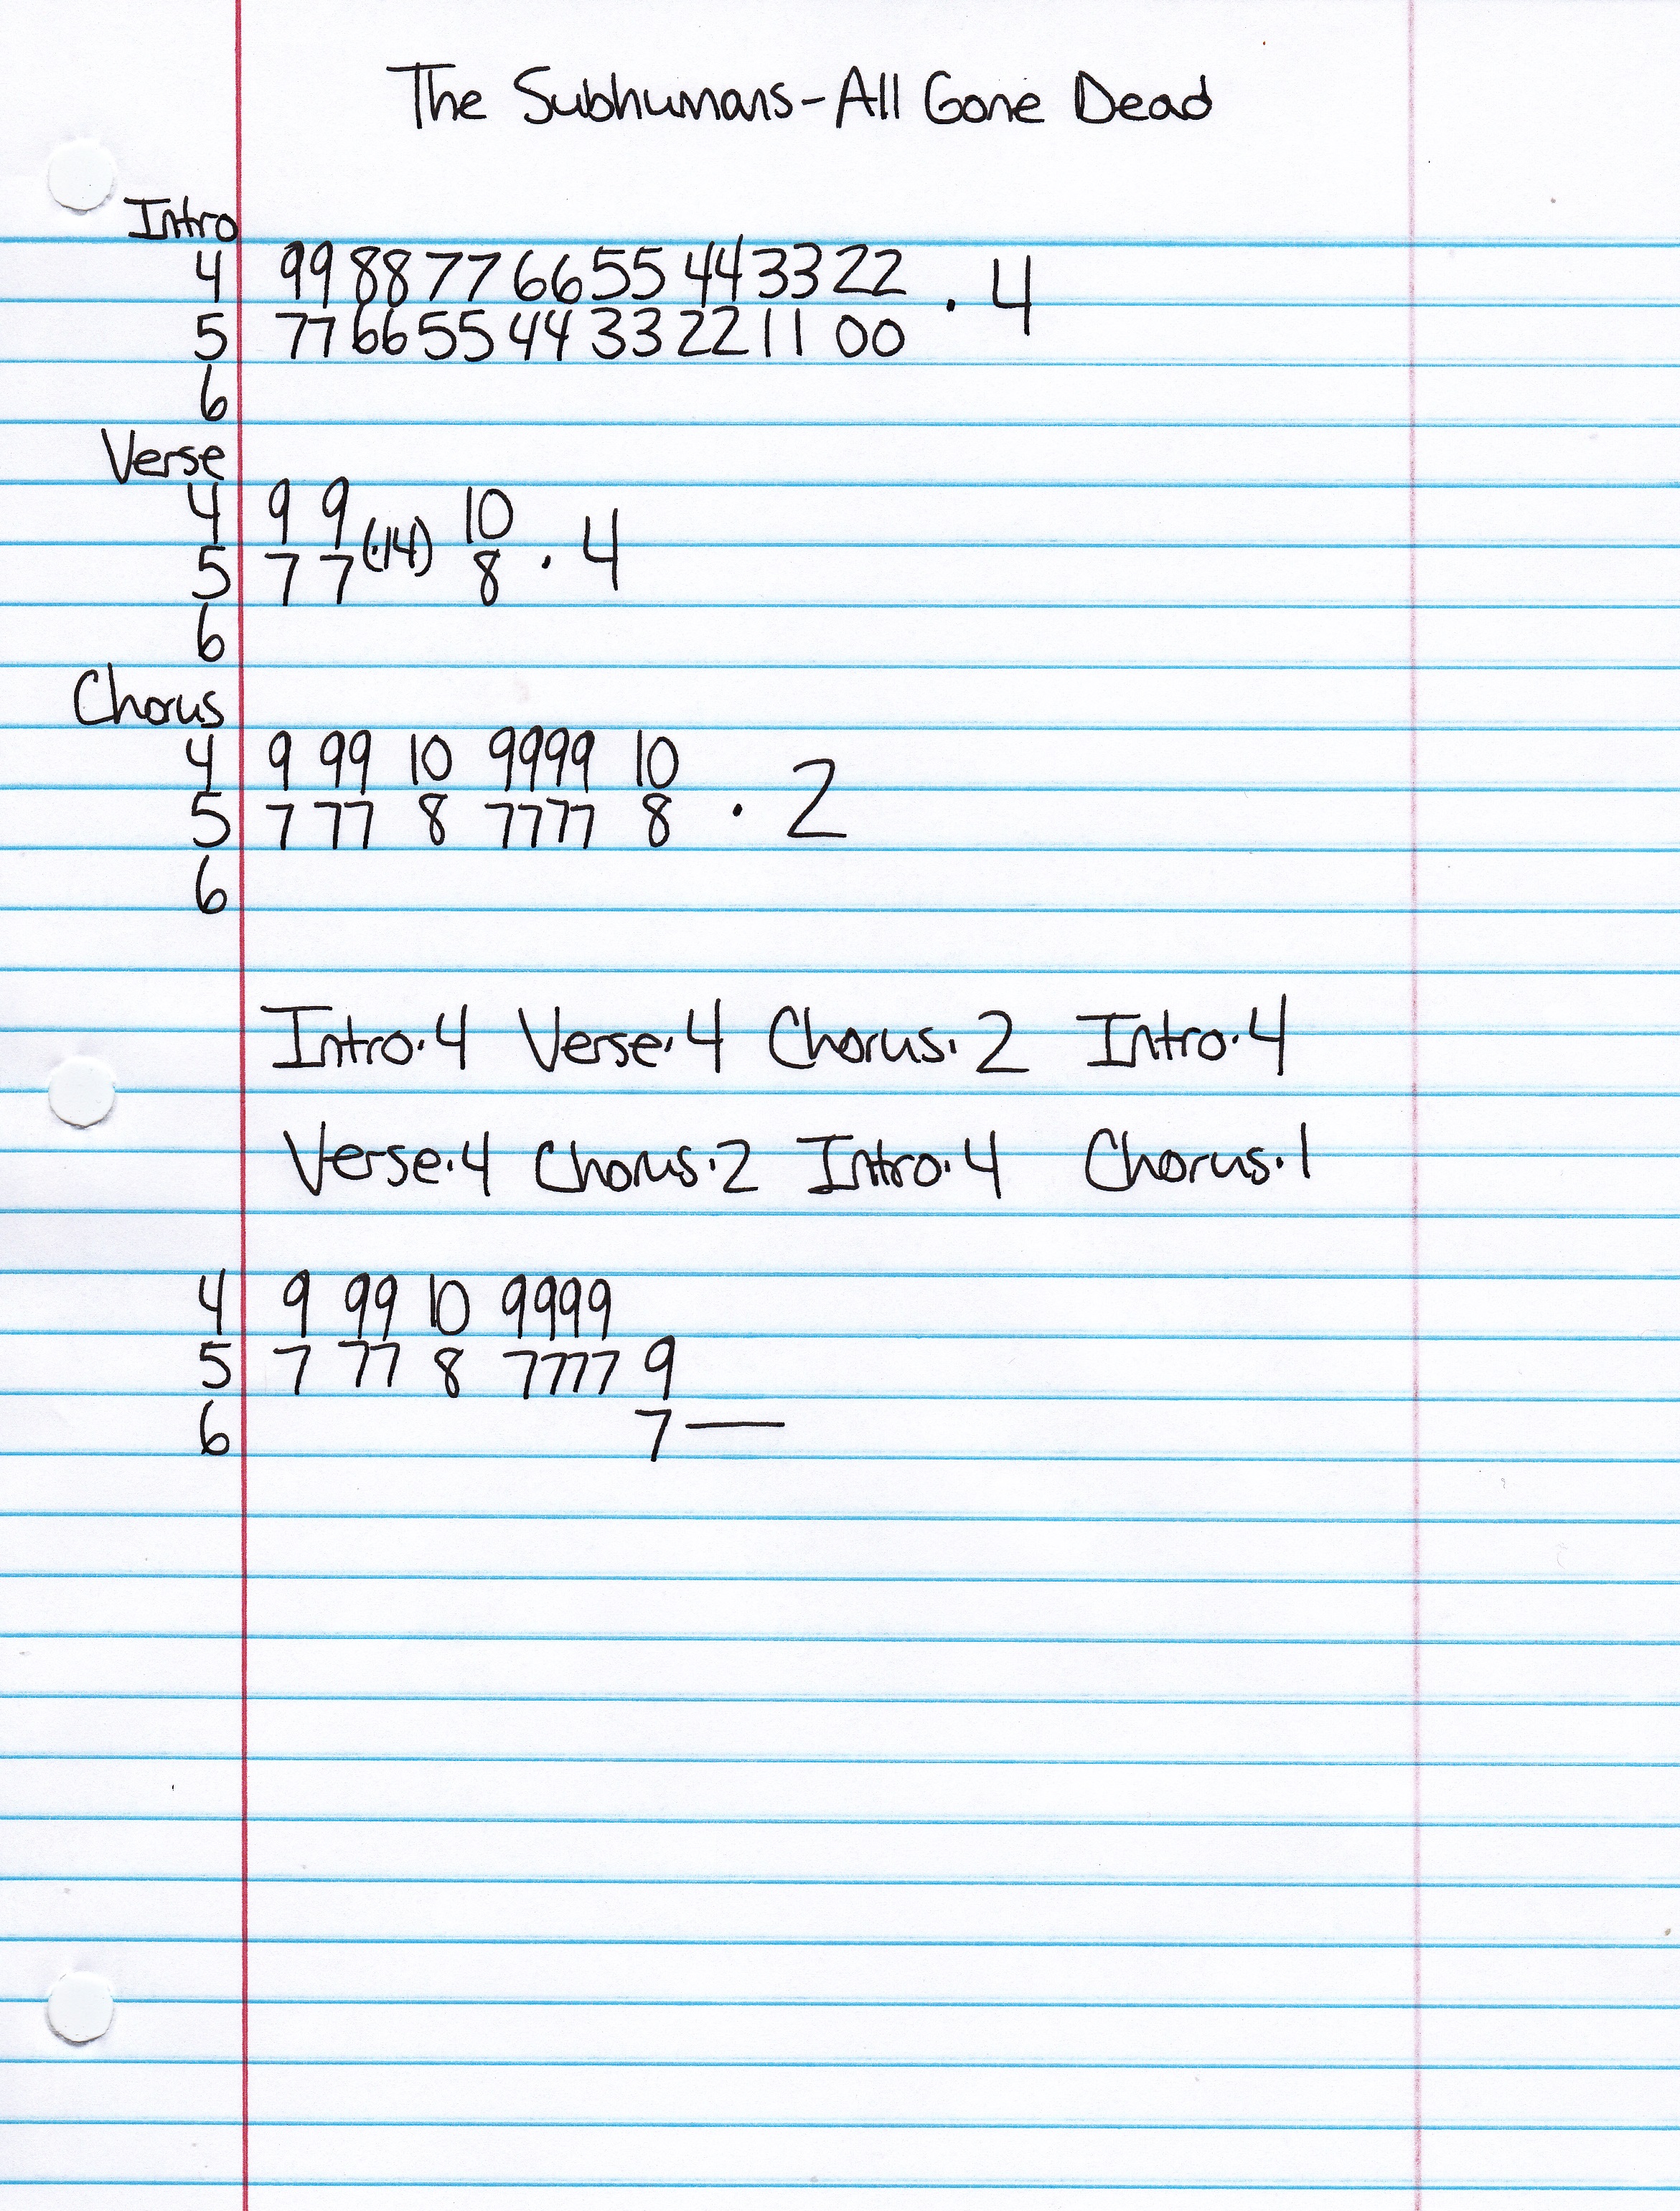 The Subhumans-All Gone Dead
Intro
4 99 88 77 66 55 44 33 22
5 77 66 55 44 33 22 11 00 · 4
6
Verse
4 9 9 10
5 7 7 (·14) 8 · 4
6
Chorus
4 9 99 10 9999 10
5 7 77 8 7777 8 · 2
6
Intro·4 Verse·4 Chorus·2 Intro·4
Verse·4 Chorus·2 Intro·4 Chorus·1
4 9 99 10 9999
5 7 77 8 7777 9
6 7—